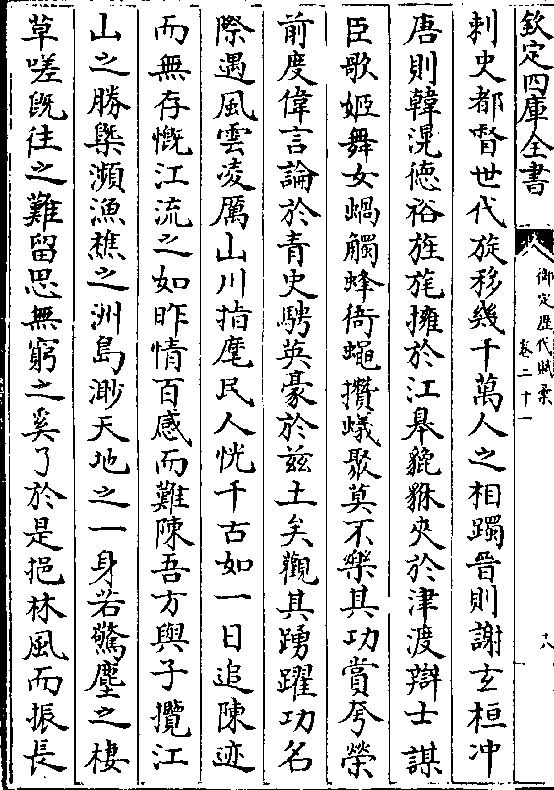 欽定四庫全書
御定歷代賦彙
卷二十一
刺史都督世代旋移幾千萬人之相躅晉則謝玄桓冲
唐則韓滉徳裕旌旄擁於江臯貔貅夾於津渡辯士謀
臣歌姬舞女蝸觸蜂衙蠅攢蟻聚莫不樂其功賞兮榮
前度偉言論於青史騁英豪於兹土矣觀其踴躍功名
際遇風雲凌厲山川指麾民人恍千古如一日追陳迹
而無存慨江流之如昨情百感而難陳吾方與子攬江
山之勝槩瀕漁樵之洲島渺天地之一身若驚塵之棲
草嗟既往之難留思無窮之奚了於是挹林風而振長